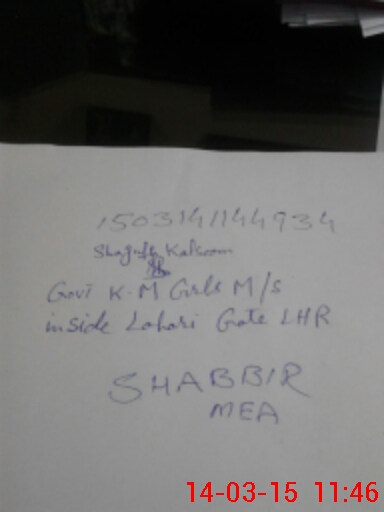 150314144934
Shagufta Kalsoom
Govt K.M Girls M/s
inside Lohari Gate LHR
SHABBIR
MEA
14-03-15 11:46